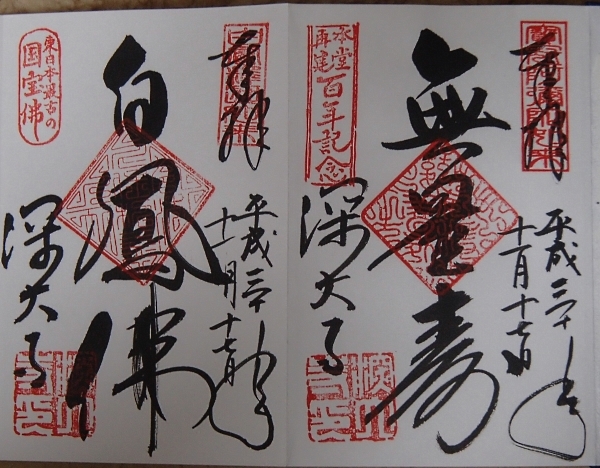 奉拝
平成三十年
十一月十七日
無量寿
本堂再建
百年記念
深大寺
奉拝
平成三十年
十一月十七日
白鳳佛
東日本最古の
国宝佛
深大寺